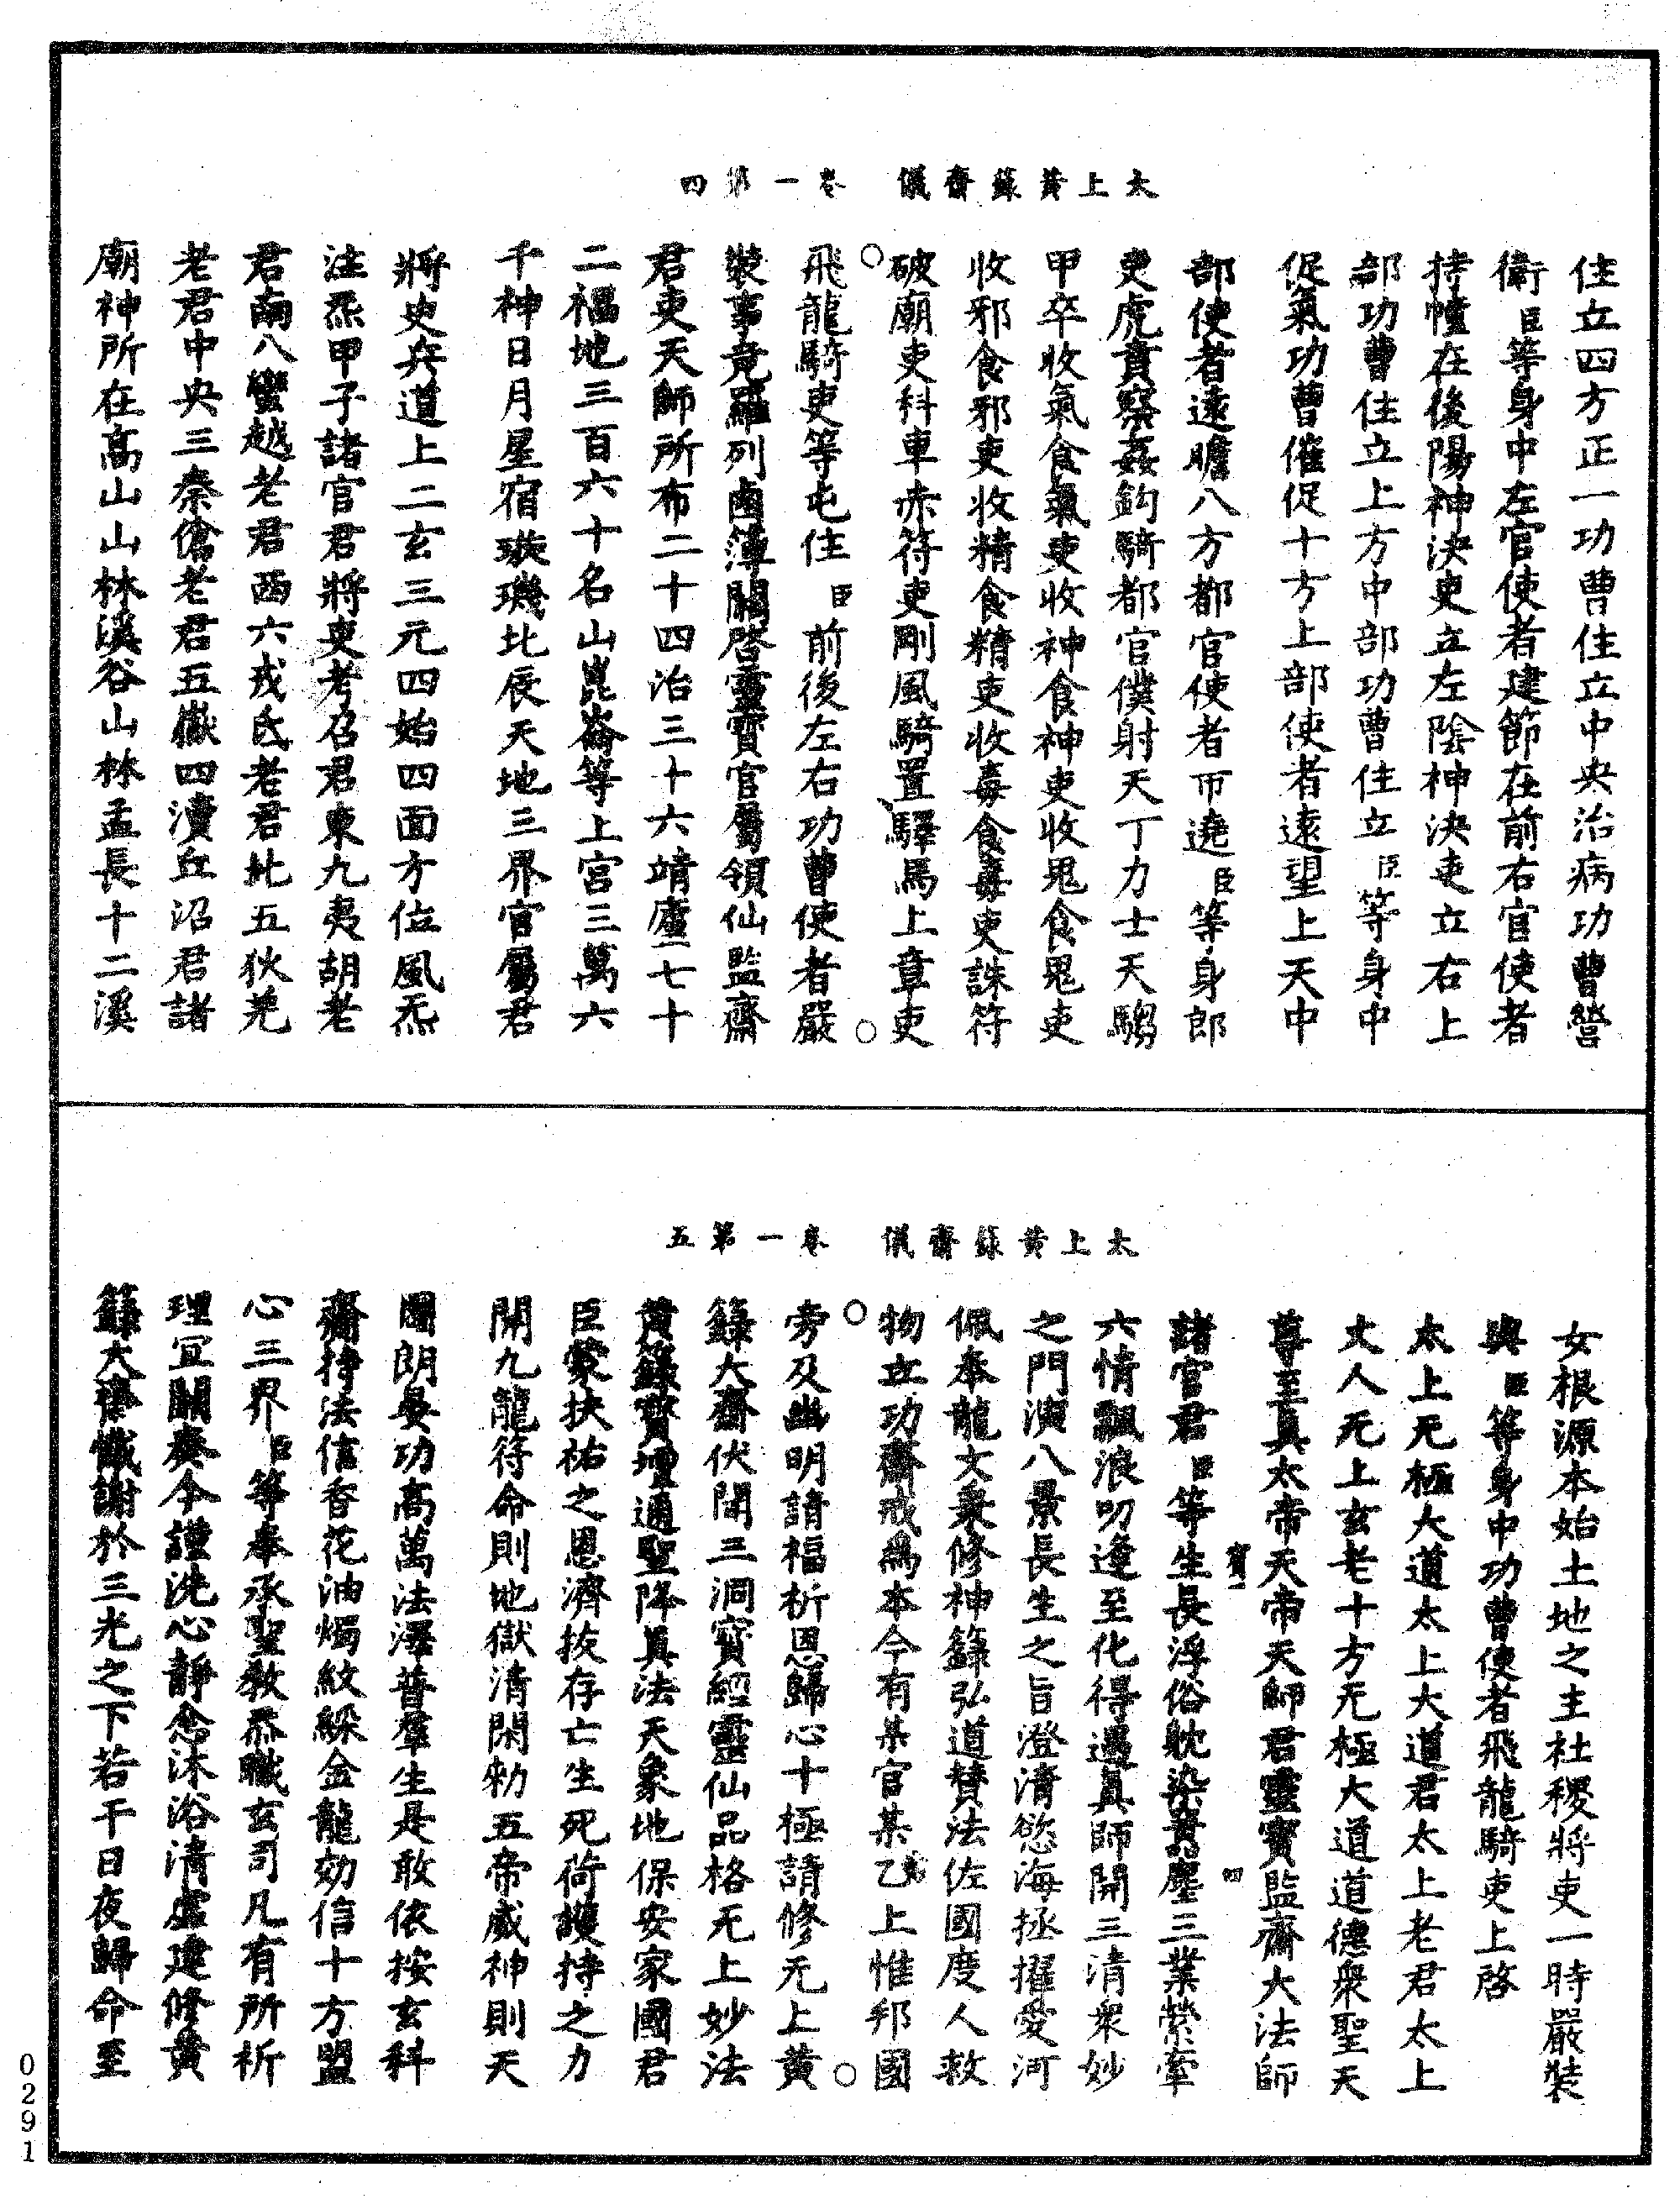 太上黃籙齋儀　卷一第四
住立四方正一功曹住立中央治病功曹營
衛臣等身中左官使者建節在前右官使者
持幢在後陽神決吏立左陰神決吏立右上
部功曹住立上方中部功曹住立臣等身中
促氣功曹催促十方上部使者遠望上天中
部使者遠瞻八方都官使者帀遶臣等身郎
吏虎賁察姦鈎騎都官僕射天丁力士天騶
甲卒收氣食氣吏收神食神吏收鬼食鬼吏
收邪食邪吏收精食精吏收毒食毒吏誅符
破廟吏科車赤符吏剛風騎置驛馬上章吏
飛龍騎吏等屯住臣前後左右功曹使者嚴
裝事竟羅列鹵簿關啓靈寶官屬領仙監齋
君吏天師所布二十四治三十六靖廬七十
二福地三百六十名山崑崙等上宮三萬六
千神日月星宿璇璣北辰天地三界官屬君
將吏兵道上二玄三元四始四面方位風炁
注炁甲子諸官君將吏考召君東九夷胡老
君南八蠻越老君西六戎氐老君北五狄羌
老君中央三秦傖老君五嶽四瀆丘沼君諸
廟神所在高山山林溪谷山林孟長十二溪
太上黃籙齋儀　卷一第五
女根源本始土地之主社稷將吏一時嚴裝
與臣等身中功曹使者飛龍騎吏上啓
太上无極大道太上大道君太上老君太上
丈人无上玄老十方无極大道道德衆聖天
尊至真太帝天帝天師君靈寶監齋大法師
寶一　四
諸官君臣等生長浮俗躭染囂塵三業縈牽
六情飄浪叨逢至化得遇真師開三清衆妙
之門演八景長生之旨澄清慾海拯擢愛河
佩奉龍文乗修神籙弘道賛法佐國度人救
物立功齋戒為本今有某官某乙上惟邦國
旁及幽明請福祈恩歸心十極請修无上黃
籙大齋伏聞三洞寶經靈仙品格无上妙法
黃籙寶壇通聖降真法天象地保安家國君
臣蒙扶祐之恩濟拔存亡生死荷護持之力
開九龍符命則地獄清閑勑五帝威神則天
圖朗晏功高萬法澤普羣生是敢依按玄科
齋持法信香花油燭紋綵金龍効信十方盟
心三界臣等奉承聖教忝職玄司凡有所祈
理宜關奏今謹洗心靜念沐浴清虛建修黃
籙大齋懺謝於三光之下若干日夜歸命至
0291